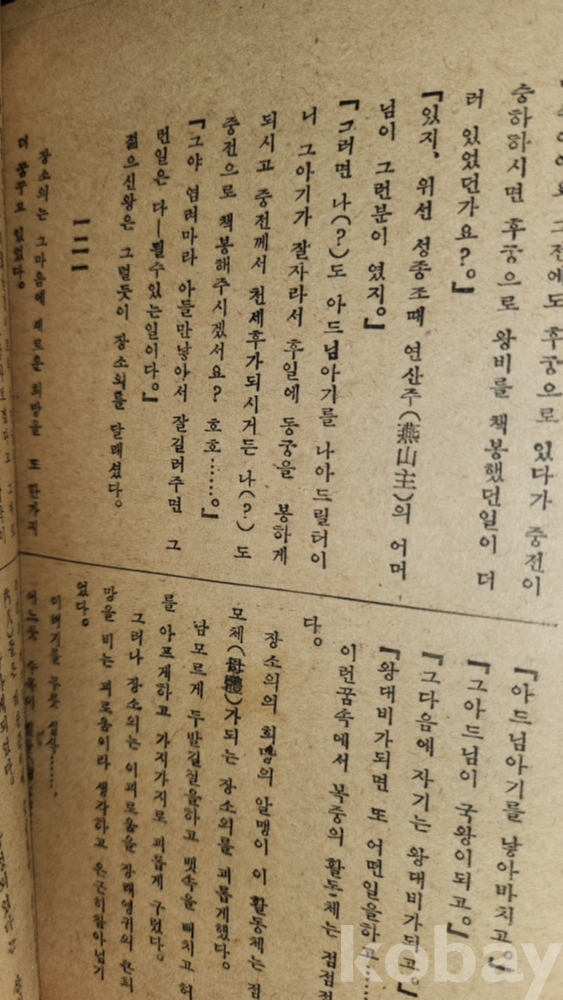 그전에도 후궁으로 있다가 중전이
승하하시면 후궁으로 왕비를 책봉했던일이 더
러 있었던가요?。』
『있지、위선 성종조때 연산주(燕山主)의 어머
님이 그런분이 였지。』
『그러면 나(?)도 아드님아기를 나아드릴터이
니 그아기가 잘자라서 후일에 동궁을 봉하게
되시고 중전께서 천세후가되시거든 나(?)도
중전으로 책봉해주시겠서요? 호호……。』
『그야 염려마라 아들만낳아서 잘길러주면 그
런일은 다―될수있는일이다。』
젊으신왕은 그럴듯이 장소의를 달래셨다。
一二一
장소의는 그마음에 새로운 희망을 또 한가지
더 꿈꾸고 있었다。
『아드님아기를 낳아바치고。』
『그아드님이 국왕이되고。』
『그다음에 자기는 왕대비가되고。』
『왕대비가되면 또 어떤일을하고……
이런꿈속에서 복중의 활동체는 점점
다。
장소의의 희망의 알맹이 이 활동체는 점
모체(母體)가되는 장소의를 괴롭게했다。
남모르게 두발길질을하고 뱃속을 뻐치고 허
를 아프게하고 가지가지로 괴롭게 구렀다。
그러나 장소의는 이괴로움을 장래영귀의
망을 비는 괴로움이라 생각하고 은근히참아넘기
었다。
kobay